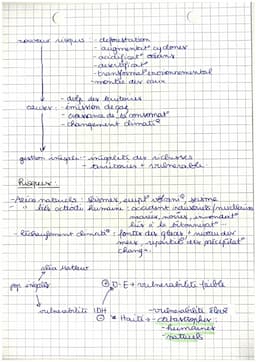 nouveaux risques - déforestation
- augmentat° cyclones
- acidificat° océans
- désertificat°
- transformat° environnemental
- montée des eaux
causes - dvlp des territoires
- émission de gaz
- croissance de la consommat°
- changement climatiq
gestion inégale - inégalité des richesses
territoires + vulnérable
Risques :
- Aléas naturels : séismes, érupt° volcani
" liés activité humaine : accident industriels / nucléaires
marées noires, inondat°
liés à
- Réchauffement climatiq : fontes des glaces + montée des
mers, répartit° des précipitat°
change.
aléa
pop inégale
⊕ D-E → vulnérabilité faible
vulnérabilité IDH
vulnérabilité élevé
⊖ Haïti → catastrophes
- humaines
- naturels